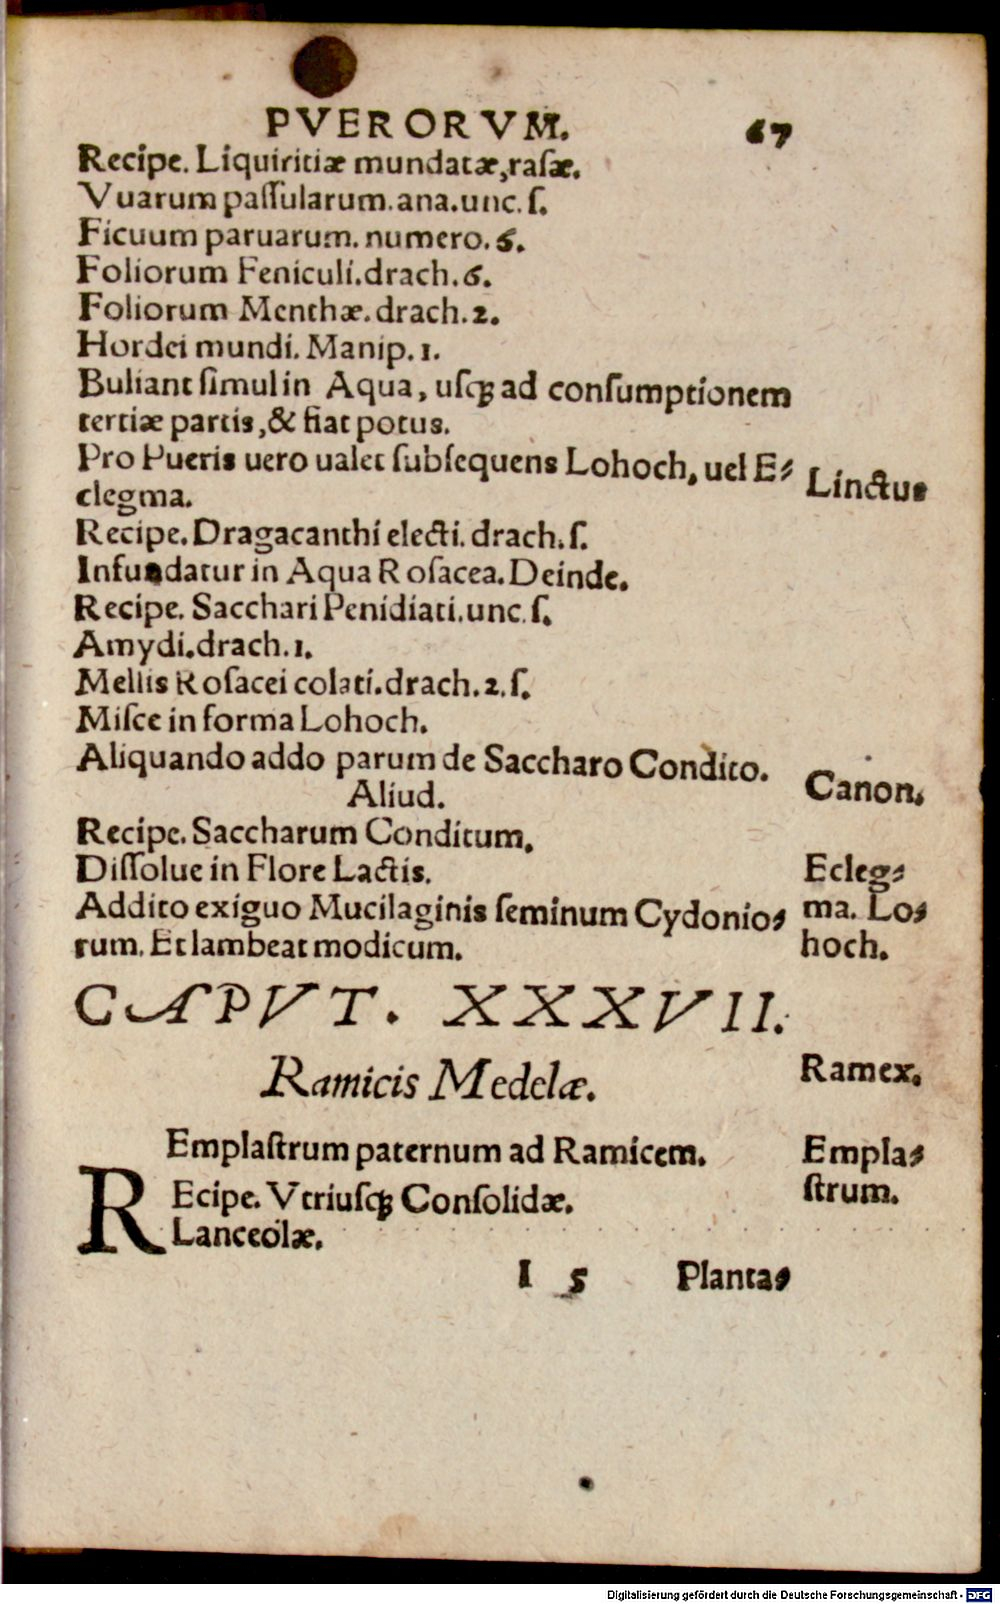 PVERORVM. 67
Recipe. Liquiritiæ mundatæ, rasæ.
Vuarum passularum. ana. unc. ſ.
Ficuum paruarum. numero. 6.
Foliorum Feniculi. drach. 6.
Foliorum Menthæ. drach. 2.
Hordei mundi. Manip. 1.
Buliant simul in Aqua, uſqꝫ ad conſumptionem
tertiæ partis, & fiat potus.
Pro Pueris uero ualet ſubſequens Lohoch, uel E⸗
clegma.
Linctus
Recipe. Dragacanthi electi. drach. ſ.
Infundatur in Aqua Roſacea. Deinde.
Recipe. Sacchari Penidiati. unc. ſ.
Amydi. drach. 1.
Mellis Roſacei colati. drach. 2. ſ.
Miſce in forma Lohoch.
Aliquando addo parum de Saccharo Condito.
Canon.
Aliud.
Recipe. Saccharum Conditum.
Diſſolue in Flore Lactis.
Addito exiguo Mucilaginis ſeminum Cydonio⸗
rum. Et lambeat modicum.
Ecleg⸗
ma. Lo⸗
hoch.
CAPVT. XXXVII.
Ramicis Medelæ.
Ramex.
Emplaſtrum paternum ad Ramicem.
Empla⸗
ſtrum.
REcipe. Vtriuſqꝫ Conſolidæ.
Lanceolæ.
I 5 Planta⸗
Digitalisierung gefördert durch die Deutsche Forschungsgemeinschaft - DFG